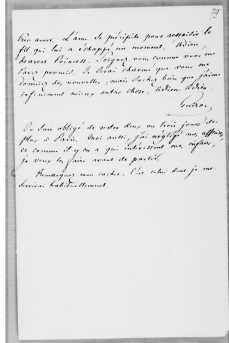 79
bien aimée. L'âme se précipite pour ressaisir le
fil qui lui a échappé un moment. Adieu,
dearest Princess. Soignez-vous comme vous me
l'avez promis. Je serai charmé que vous me
donniez des nouvelles; mais sachez bien que j'aime
infiniment mieux autre chose. Adieu. Adieu.
Guizot
Je suis obligé de rester deux ou trois jours de
plus à Paris. Moi aussi, j'ai négligé mes affaires,
et comme il y en a qui intéressent mes enfans,
je veux les faire avant de partir.
Remarquez mon cachet. C'est celui dont je me
servirai habituellement.